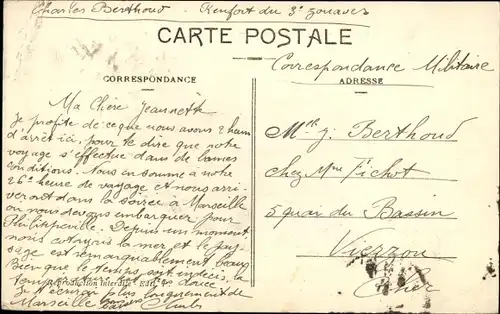 Charles Berthoud - Renfort du 3e zouaves
CARTE POSTALE
Correspondance Militaire
CORRESPONDANCE
ADRESSE
Ma Chère Jeannette
Je profite de ce que nous avons 2 heures
d'arrêt ici, pour te dire que notre
voyage s'effectue dans de bonnes
conditions. Nous en sommes à notre
26e heure de voyage et nous arri-
verons dans la soirée à Marseille
où nous devons embarquer pour
Philippeville. Depuis un moment
nous cotoyons la mer et le pay-
sage est remarquablement beau
Bien que le temps soit indécis, la
température est
Reproduction interdite
Je t'écrirai plus longuement de
Marseille
Charles
Mlle J. Berthoud
chez Mme Fichot
5 quai du Bassin
Vierzon
Cher